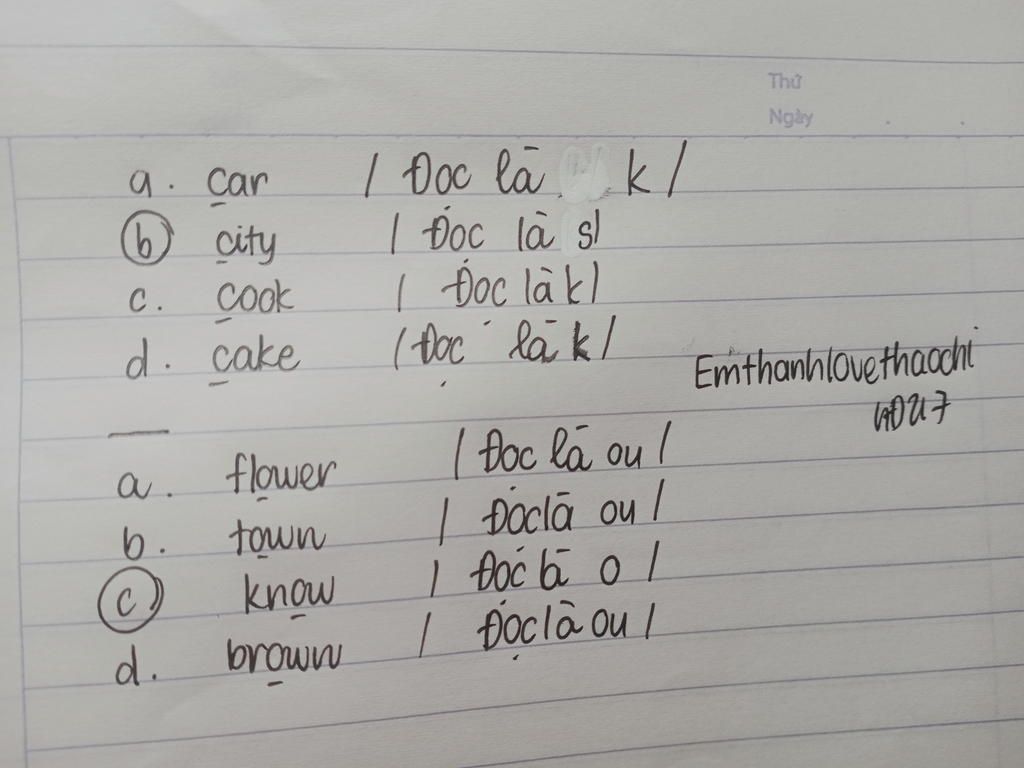 Thứ
Ngày
a. car / Đọc là k /
b city / Đọc là s/
c. cook / Đọc là k /
d. cake / Đọc là k /
Emthanhlovethaochi
a. flower / Đọc là ou /
b. town / Đọc là ou /
c know / Đọc là o /
d. brown / Đọc là ou /